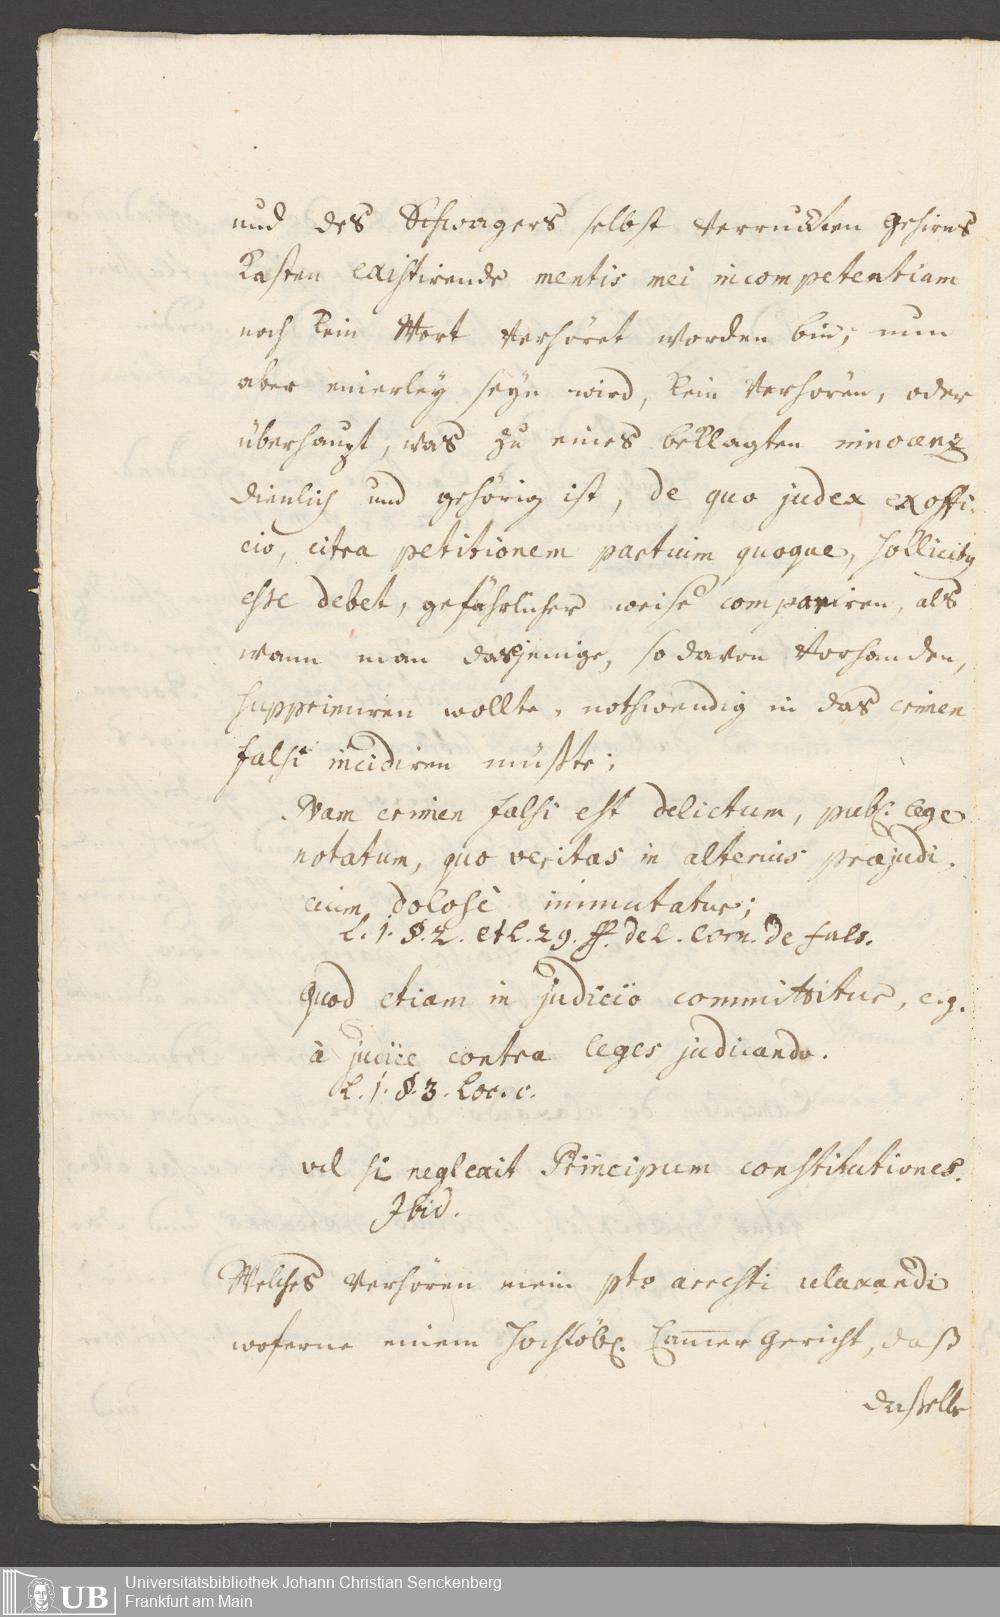 und des Schwagers selbst verruckten gehirns
Kasten existirende mentis mei incompetentiam
noch kein Wort verhöret worden bin; nun
aber einerley seyn wird, kein verhören, oder
überhaupt, was zu eines beklagten innocenz
dienlich und gehörig ist, de quo judex ex offi-
cio, citra petitionem partium quoque, sollicitus
esse debet, gefährlicher weise compariren, als
wann man dasjenige, so davon vorhanden,
supprimiren wollte, nothwendig in das crimen
falsi incidiren müßte;
Nam crimen falsi est delictum, publ. lege
notatum, quo veritas in alterius præjudi-
cium dolosè immutatur;
L. 1. §. 2. et L. 29. ff. de L. Corn. de fals.
Quod etiam in judicio committitur, e. g.
à judice contra leges judicando.
L. 1. §. 3. Loc. c.
vel si neglexit Principum constitutiones.
Ibid.
Welches verhören mein pto arresti relaxandi
woferne einem Hochlöbl. Cammer Gericht, daß
dasselbe
UB
Universitätsbibliothek Johann Christian Senckenberg
Frankfurt am Main